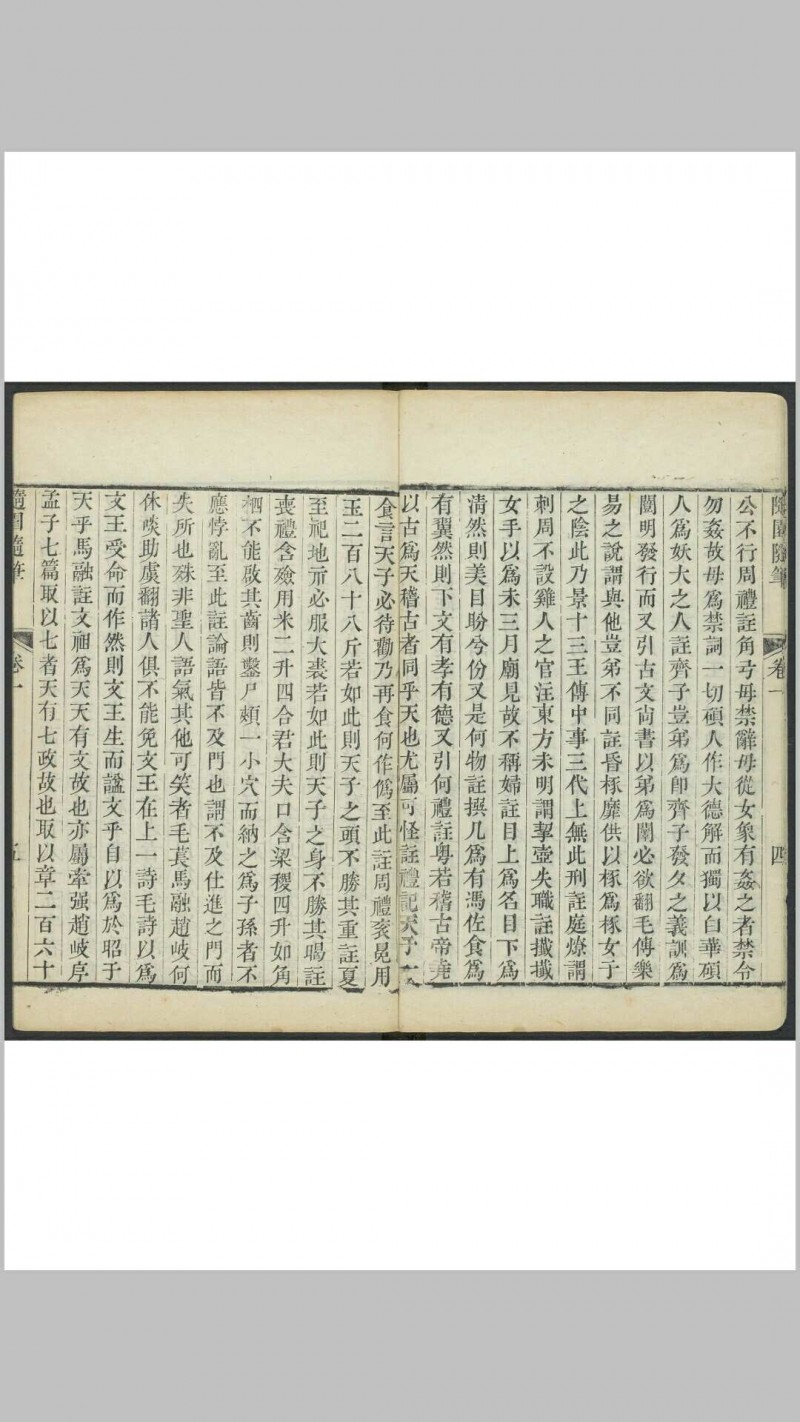 隨園隨筆 卷一 四
公不行周禮註角弓毋禁辭毋從女象有姦之者禁令
勿姦故毋爲禁詞一切碩人作大德解而獨以白華碩
人爲妖大之人註齊子豈弟爲卽齊子發夕之義訓爲
闓明發行而又引古文尙書以弟爲圛必欲翻毛傳樂
易之說謂與他豈弟不同註昏椓靡供以椓爲椓女子
之陰此乃景十三王傳中事三代上無此刑註庭燎謂
刺周不設雞人之官註東方未明謂挈壺失職註摻摻
女手以爲未三月廟見故不稱婦註目上爲名目下爲
淸然則美目盼兮份又是何物註撰几爲有馮佐食爲
有翼然則下文有孝有德又引何禮註粵若稽古帝堯
以古爲天稽古者同乎天也尤屬可怪註禮記天子一
食言天子必待勸乃再食何作僞至此註周禮衮冕用
玉二百八十八斤若如此則天子之頭不勝其重註夏
至祀地示必服大裘若如此則天子之身不勝其暍註
喪禮含飱用米二升四合君大夫口含粱稷四升如角
柶不能啟其齒則鑿尸頰一小穴而納之爲子孫者不
應悖亂至此註論語皆不及門也謂不及仕進之門而
失所也殊非聖人語氣其他可笑者毛萇馬融趙岐何
休啖助虞翻諸人俱不能免文王在上一詩毛詩以爲
文王受命而作然則文王生而諡文乎自以爲於昭于
天乎馬融註文祖爲天天有文故也亦屬牽强趙岐序
孟子七篇取以七者天有七政故也取以章二百六十
隨園隨筆 卷一 五